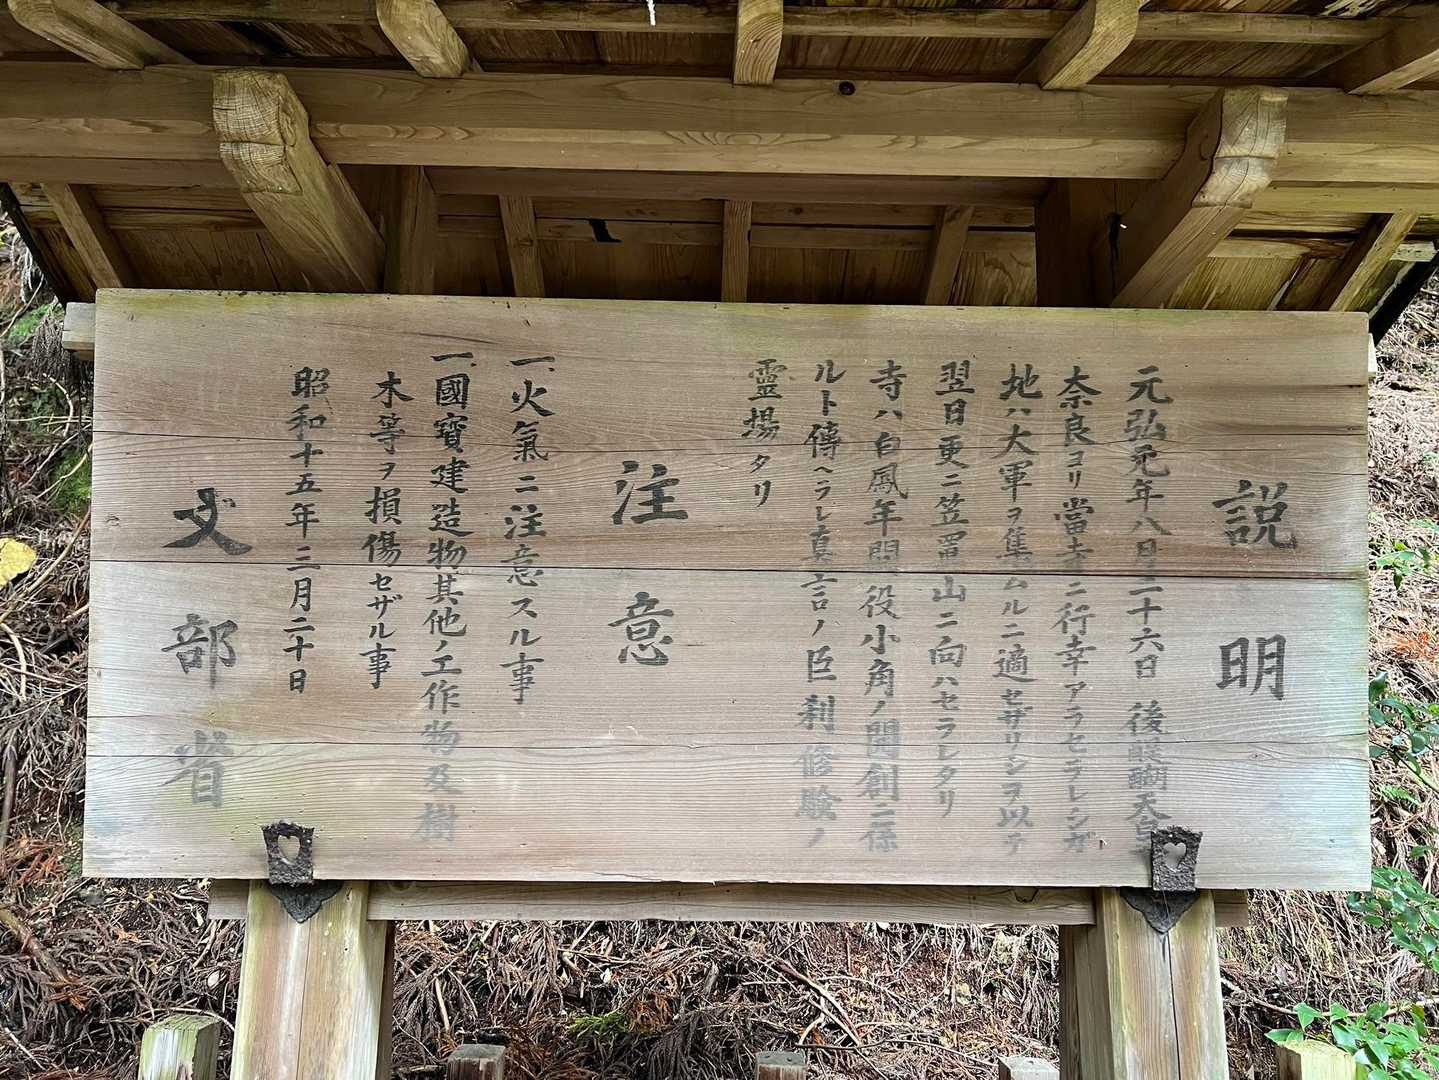 説明
元弘元年八月二十六日 後醍醐天皇
奈良ヨリ當寺ニ行幸アラセラレシガ
地ハ大軍ヲ集ムルニ適セザリシヲ以テ
翌日更ニ笠置山ニ向ハセラレタリ
寺ハ白鳳年間役小角ノ開創ニ係
ルト傳ヘラレ真言ノ巨刹修験ノ
靈場タリ
注意
一、火氣ニ注意スル事
一、國寶建造物其他ノ工作物及樹
木等ヲ損傷セザル事
昭和十五年三月二十日
文部省